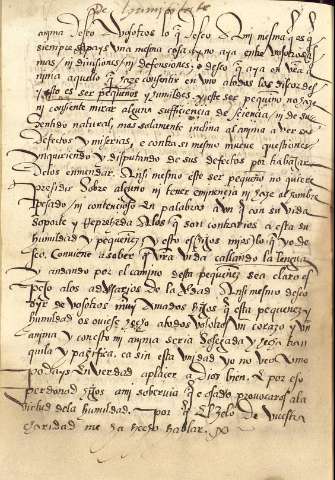 De humildad
anima deseo Vosotros lo q̃ deseo A mi mesma q̃ es q̃
siempre seays una mesma cosa y no aya entre vosotros
mas ni divisiones ni defensiones: o deseo q̃ aya en vr̃a
anima aquello q̃ haze consentir en uno atodos los discordes
y esto es ser pequeños y humildes y este ser pequeño no haze
ni consiente mirar alguna sufficiencia de sciencia ni de su
sentido natural, mas solamente inclina al anima a ver sus
Defectos y miserias, e contra si mesmo mueve questiones
Inquiriendo y disputando de sus defectos por trabajar
Delos emendar. Ansi mesmo este ser pequeño no quiere
presidir Sobre alguno ni tener eminencia ni haze al hombre
Pesado ni contencioso En palabras aun q̃ con su vida
soporte y Reprehenda Alos q̃ son contrarios a esta su
humildad y pequeñez y esto es hijos mios lo q̃ yo de
seo. Conviene a saber q̃ vr̃a vida callando la lengua
y andando por el camino desta pequeñez sea claro es
pejo alos adversarios de la Verdad. Ansi mesmo deseo
oyr de vosotros muy Amados hijos q̃ esta pequeñez y
humildad os oviese hecho atodos vosotros un coraçon y un
anima y con esto mi anima seria sosegada y hecha tran
quila y pazifica, ca sin esta unidad yo no veo como
podays En verdad aplazer a Dios bien. E por eso
perdonad hijos ami sobervia q̃ e osado provocaros ala
virtud dela humildad. Por q̃ El zelo De vuestra
charidad me ha hecho hablar.